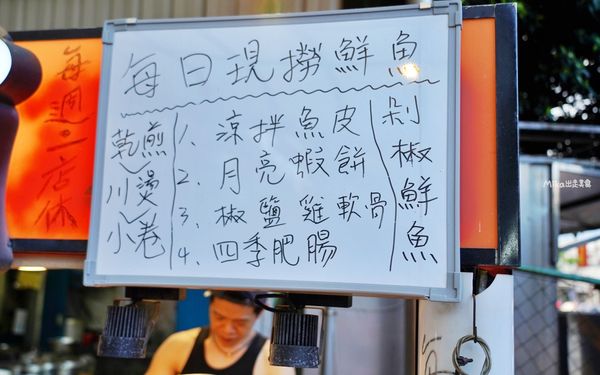 每日現撈鮮魚
乾煎
川燙
小卷
1. 涼拌魚皮
2. 月亮蝦餅
3. 椒鹽雞軟骨
4. 四季肥腸
剁椒鮮魚
每週一店休
Mika出走美食